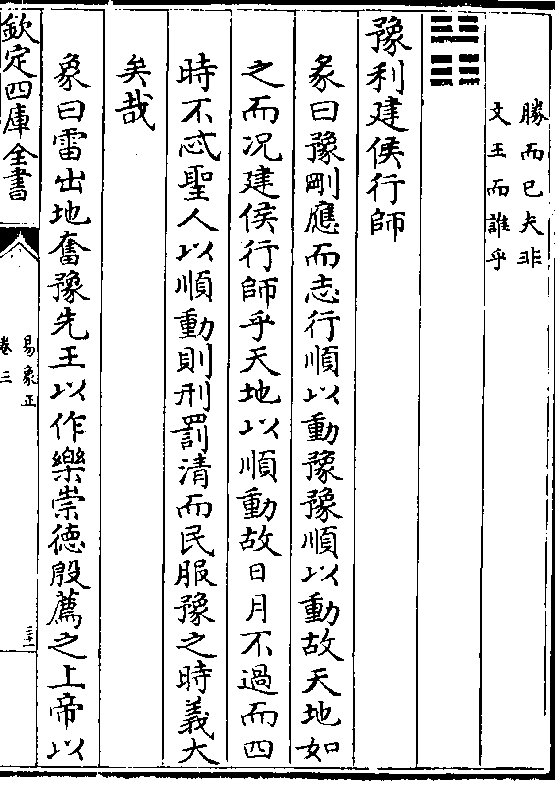 勝而已夫非
文王而誰乎
豫利建侯行師
彖曰豫剛應而志行順以動豫豫順以動故天地如
之而况建侯行師乎天地以順動故日月不過而四
時不忒聖人以順動則刑罰清而民服豫之時義大
矣哉
象曰雷出地奮豫先王以作樂崇德殷薦之上帝以
欽定四庫全書
易象正
卷三